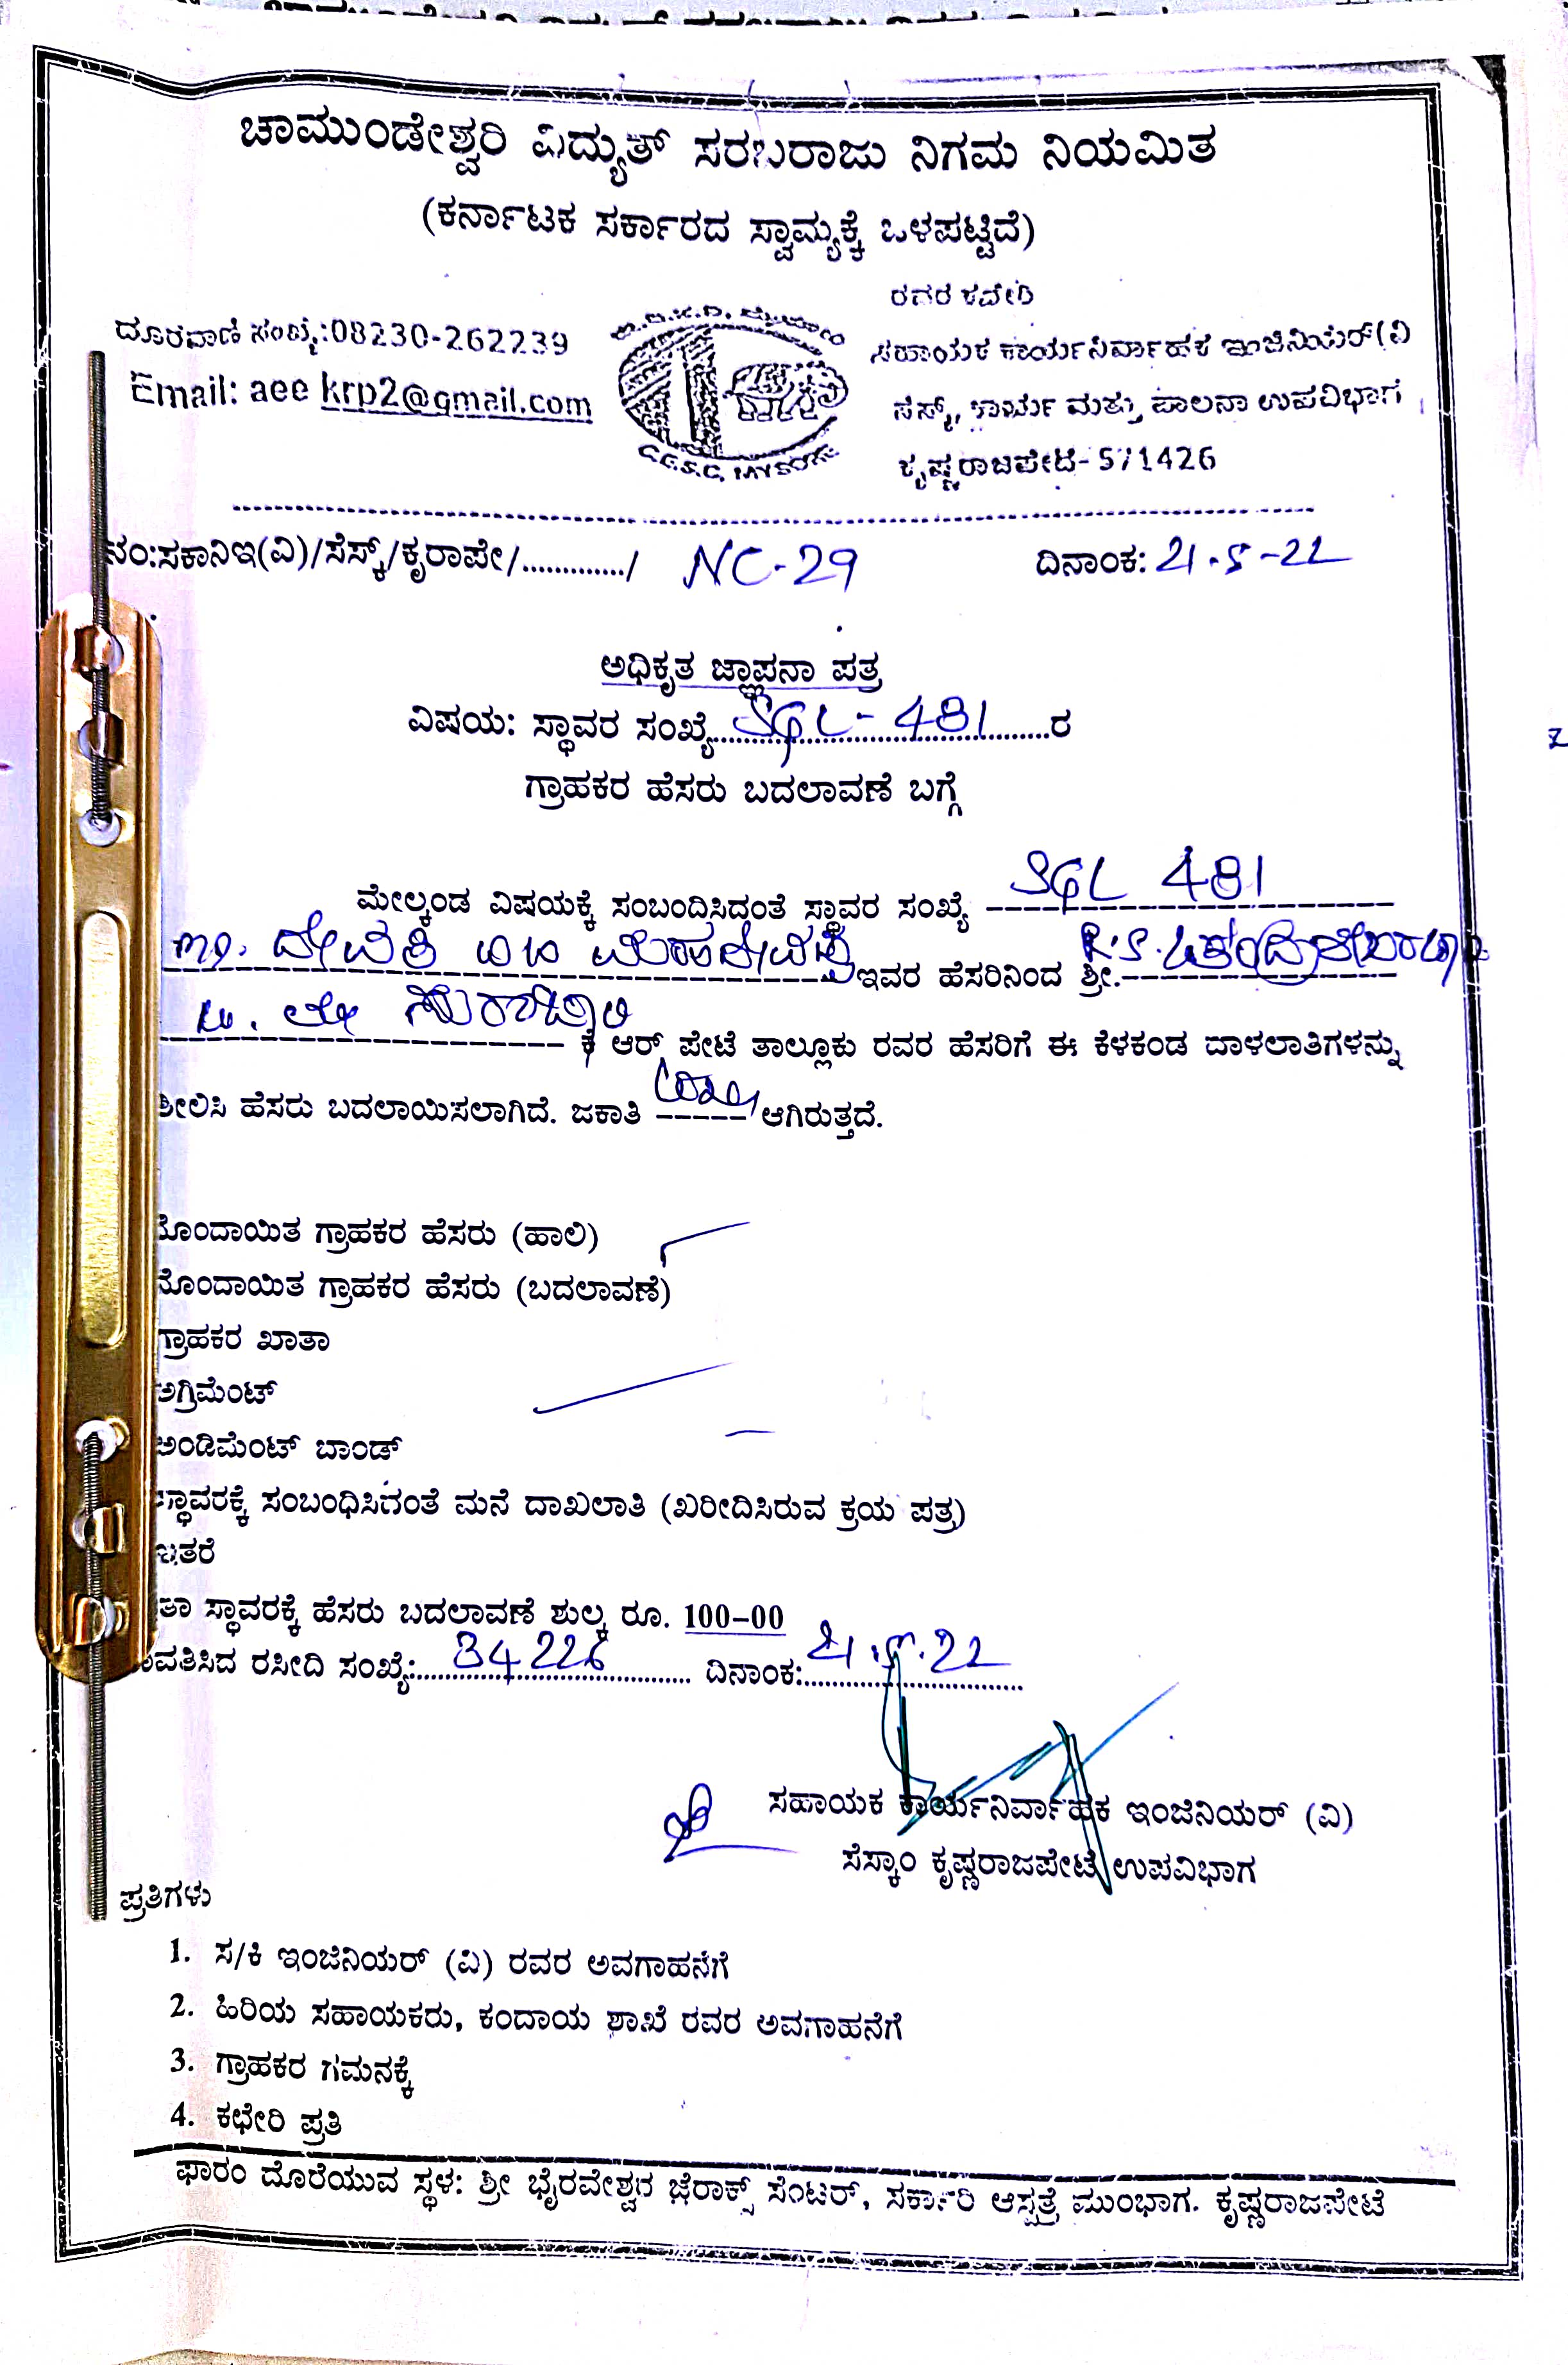 ಚಾಮುಂಡೇಶ್ವರಿ ವಿದ್ಯುತ್ ಸರಬರಾಜು ನಿಗಮ ನಿಯಮಿತ
(ಕರ್ನಾಟಕ ಸರ್ಕಾರದ ಸ್ವಾಮ್ಯಕ್ಕೆ ಒಳಪಟ್ಟಿದೆ)
ದೂರವಾಣಿ ಸಂಖ್ಯೆ:08230-262239
Email: aee krp2@gmail.com
C.E.S.C, MYSORE
ರವರ ಕಛೇರಿ
ಸಹಾಯಕ ಕಾರ್ಯನಿರ್ವಾಹಕ ಇಂಜಿನಿಯರ್(ವಿ
ಸೆಸ್ಕ್, ಕಾರ್ಯ ಮತ್ತು ಪಾಲನಾ ಉಪವಿಭಾಗ
ಕೃಷ್ಣರಾಜಪೇಟೆ- 571426
ನಂ:ಸಕಾನಿಇ(ವಿ)/ಸೆಸ್ಕ್/ಕೃರಾಪೇ/............./ NC-29 ದಿನಾಂಕ: 21.5-22
ಅಧಿಕೃತ ಜ್ಞಾಪನಾ ಪತ್ರ
ವಿಷಯ: ಸ್ಥಾವರ ಸಂಖ್ಯೆ SGL-481 ರ
ಗ್ರಾಹಕರ ಹೆಸರು ಬದಲಾವಣೆ ಬಗ್ಗೆ
ಮೇಲ್ಕಂಡ ವಿಷಯಕ್ಕೆ ಸಂಬಂದಿಸಿದಂತೆ ಸ್ಥಾವರ ಸಂಖ್ಯೆ SGL 481
ಇವರ ಹೆಸರಿನಿಂದ ಶ್ರೀ. R.S.
ಕೆ ಆರ್ ಪೇಟೆ ತಾಲ್ಲೂಕು ರವರ ಹೆಸರಿಗೆ ಈ ಕೆಳಕಂಡ ದಾಳಲಾತಿಗಳನ್ನು
ಶೀಲಿಸಿ ಹೆಸರು ಬದಲಾಯಿಸಲಾಗಿದೆ. ಜಕಾತಿ ಆಗಿರುತ್ತದೆ.
ನೊಂದಾಯಿತ ಗ್ರಾಹಕರ ಹೆಸರು (ಹಾಲಿ)
ನೊಂದಾಯಿತ ಗ್ರಾಹಕರ ಹೆಸರು (ಬದಲಾವಣೆ)
ಗ್ರಾಹಕರ ಖಾತಾ
ಅಗ್ರಿಮೆಂಟ್
ಅಂಡಿಮೆಂಟ್ ಬಾಂಡ್
ಸ್ಥಾವರಕ್ಕೆ ಸಂಬಂಧಿಸಿದಂತೆ ಮನೆ ದಾಖಲಾತಿ (ಖರೀದಿಸಿರುವ ಕ್ರಯ ಪತ್ರ)
ಇತರೆ
ಸ್ಥಾವರಕ್ಕೆ ಹೆಸರು ಬದಲಾವಣೆ ಶುಲ್ಕ ರೂ. 100-00
ಪಾವತಿಸಿದ ರಸೀದಿ ಸಂಖ್ಯೆ: 34226 ದಿನಾಂಕ: 21.5.22
ಸಹಾಯಕ ಕಾರ್ಯನಿರ್ವಾಹಕ ಇಂಜಿನಿಯರ್ (ವಿ)
ಸೆಸ್ಕಾಂ ಕೃಷ್ಣರಾಜಪೇಟೆ ಉಪವಿಭಾಗ
ಪ್ರತಿಗಳು
1. ಸ/ಕಿ ಇಂಜಿನಿಯರ್ (ವಿ) ರವರ ಅವಗಾಹನೆಗೆ
2. ಹಿರಿಯ ಸಹಾಯಕರು, ಕಂದಾಯ ಶಾಖೆ ರವರ ಅವಗಾಹನೆಗೆ
3. ಗ್ರಾಹಕರ ಗಮನಕ್ಕೆ
4. ಕಛೇರಿ ಪ್ರತಿ
ಫಾರಂ ದೊರೆಯುವ ಸ್ಥಳ: ಶ್ರೀ ಭೈರವೇಶ್ವರ ಜೆರಾಕ್ಸ್ ಸೆಂಟರ್, ಸರ್ಕಾರಿ ಆಸ್ಪತ್ರೆ ಮುಂಭಾಗ. ಕೃಷ್ಣರಾಜಪೇಟೆ